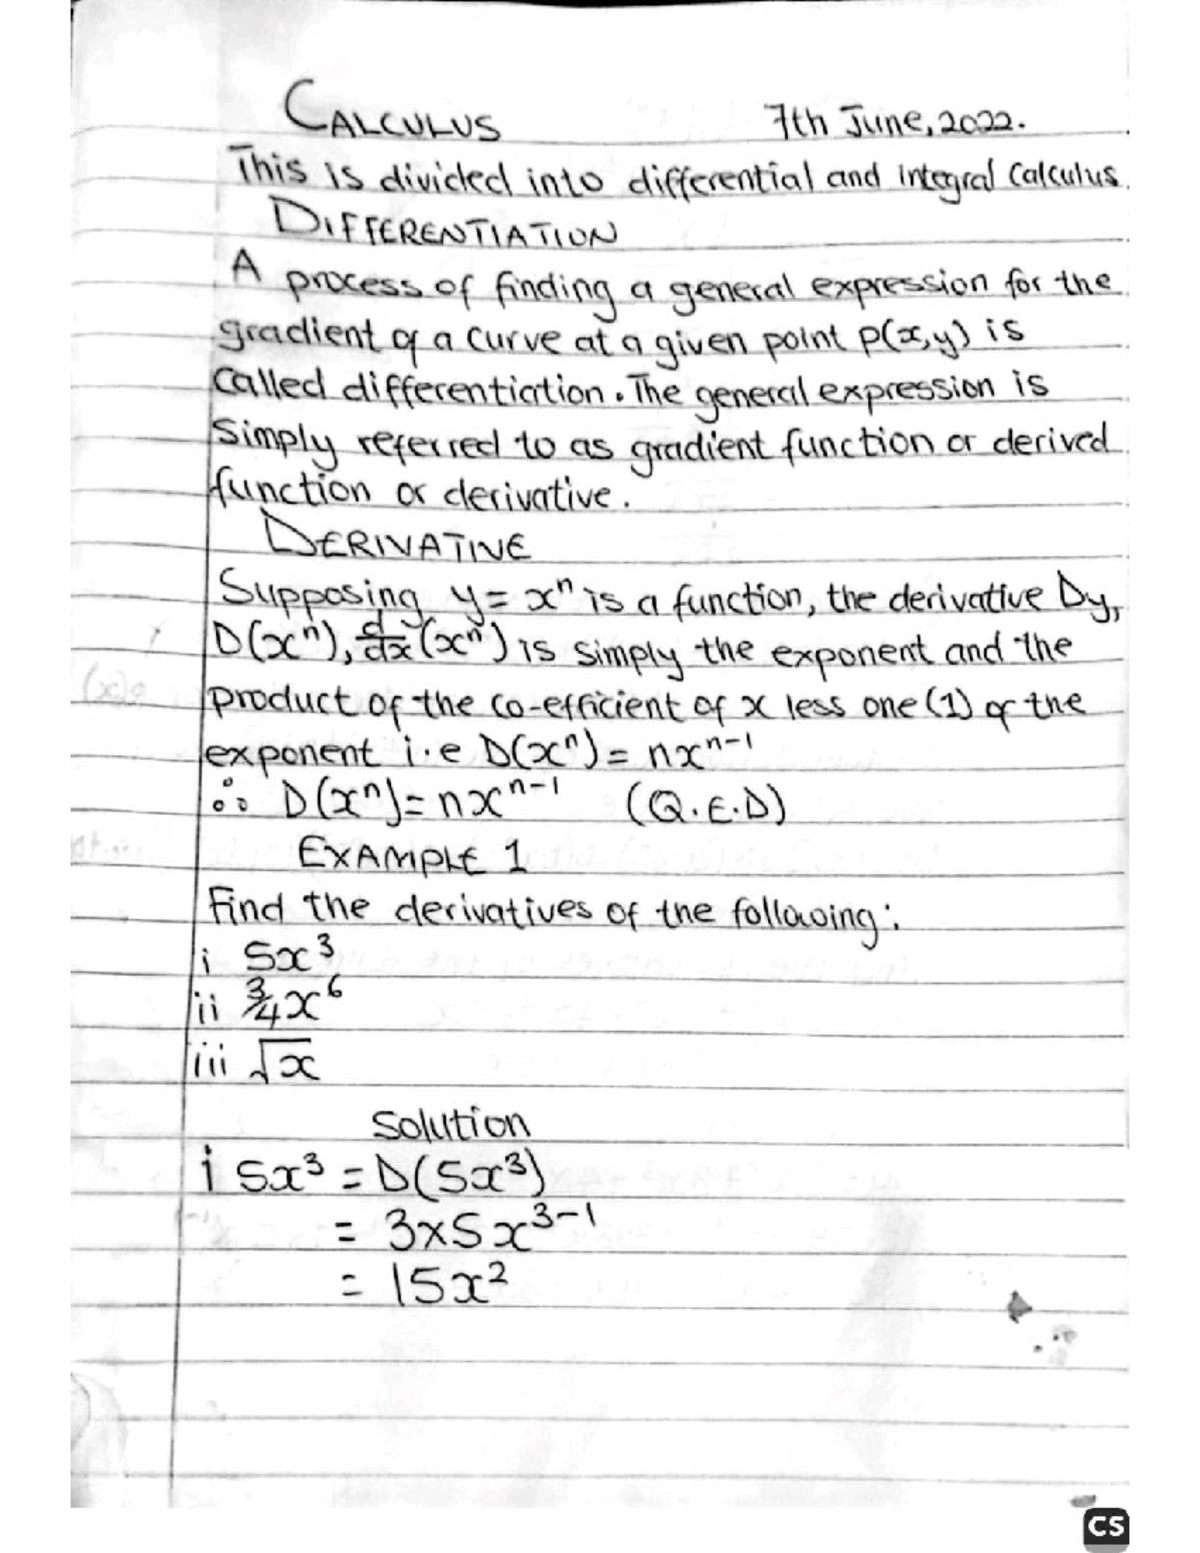 CALCULUS 7th June, 2022.
This is divided into differential and integral Calculus.
DIFFERENTIATION
A process of finding a general expression for the
gradient of a curve at a given point P(x,y) is
Called differentiation. The general expression is
Simply referred to as gradient function or derived
function or derivative.
DERIVATIVE
Supposing y = xⁿ is a function, the derivative Dy,
D(xⁿ), d/dx (xⁿ) is simply the exponent and the
product of the co-efficient of x less one (1) of the
exponent i.e D(xⁿ) = nxⁿ⁻¹
∴ D(xⁿ) = nxⁿ⁻¹ (Q.E.D)
EXAMPLE 1
Find the derivatives of the following:
i 5x³
ii ¾x⁶
iii √x
Solution
i 5x³ = D(5x³)
= 3×5x³⁻¹
= 15x²
CS